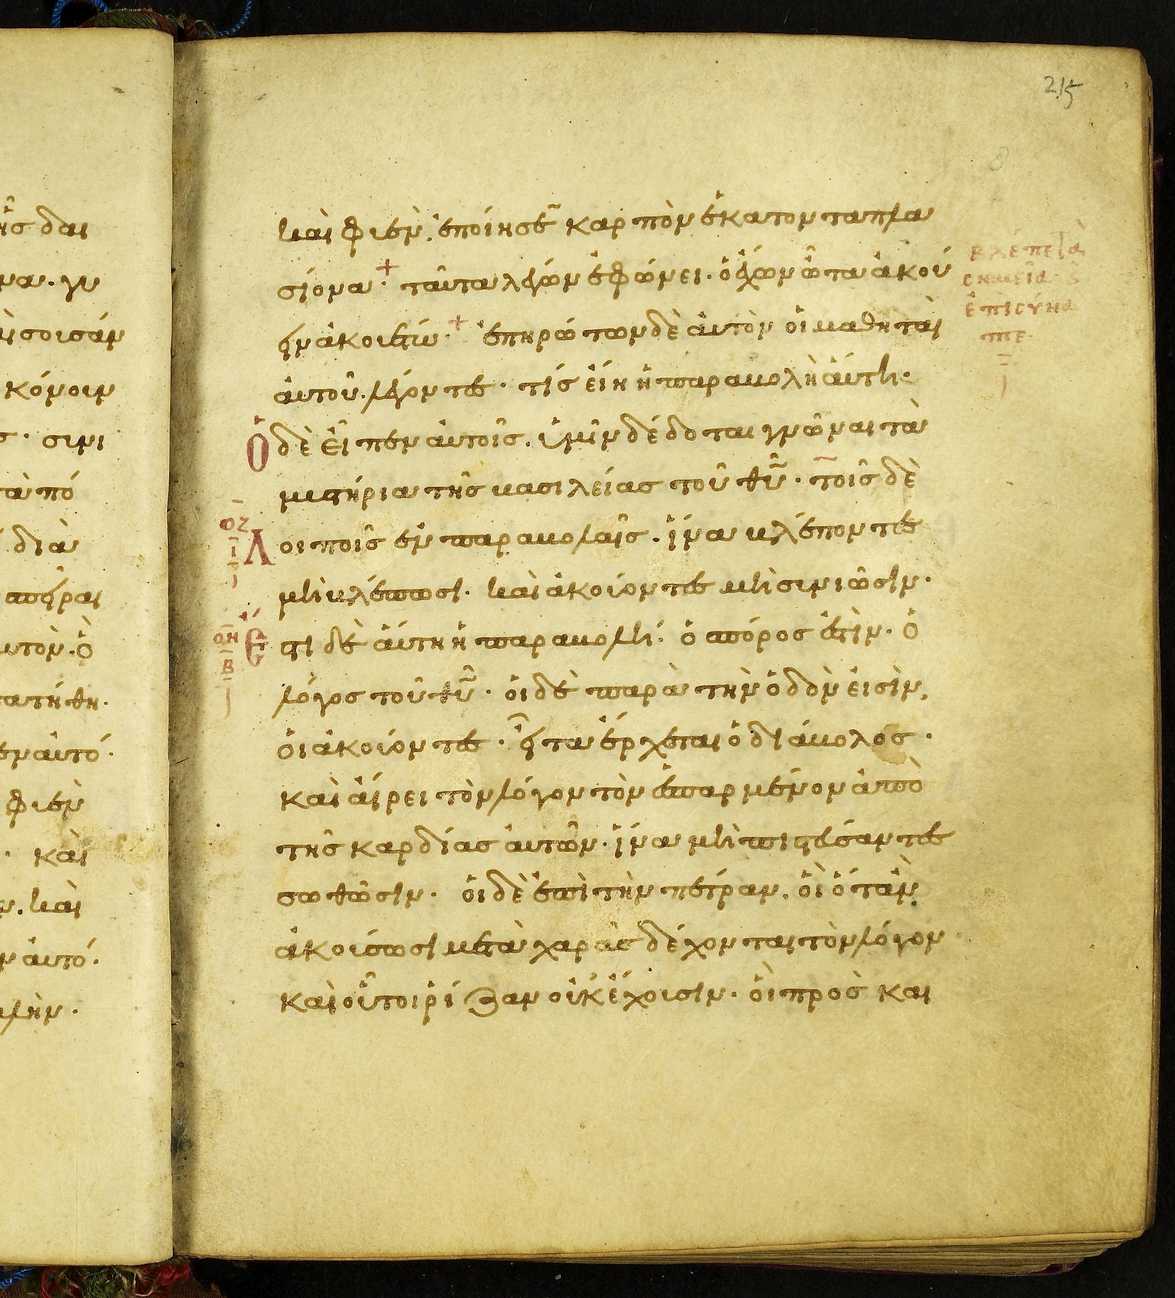 ῆσ δαι
μα· γυ
κόμοιν
σ· συμ
τὰ πό
διὰ
αυτὸν· ὁ
εμ αὐτό·
φυὲν
· καὶ
ν. καὶ
ν ἀυτό·
215
καὶ φυὲν. ἐποίησεν καρπὸν ἑκατονταπλα
σίονα· + ταῦτα λέγων ἐφώνει· ὁ ἔχων ὦτα ἀκού
ειν ἀκουέτω· + ἐπηρώτων δὲ ἀυτὸν ὁι μαθηταὶ
ἀυτοῦ. λέγοντες· τίσ ἐίη ἡ παραβολὴ ἀύτη·
Ὁ δὲ εἶπεν ἀυτοῖσ. ὑμῖν δέδοται γνῶναι τὰ
μυστήρια τῆσ βασιλείασ τοῦ θ̅υ̅· τοῖσ δὲ
Λοιποῖσ ἐν παραβολαῖσ. ἵνα βλέποντεσ
μὴ βλέπωσι· καὶ ἀκούοντεσ μὴ συνιῶσιν·
Ἔστι δὲ ἁύτη ἡ παραβολή· ὁ σπόροσ ἐστὶν· ὁ
λόγοσ τοῦ θ̅υ̅· ὁι δὲ παρὰ τὴν ὁδὸν εἰσὶν,
ὁι ἀκούοντεσ· εἶτα ἔρχεται ὁ διάβολοσ·
καὶ ἀίρει τὸν λόγον τὸν ἐσπαρμένον ἀπὸ
τῆσ καρδίασ ἀυτῶν· ἵνα μὴ πιστεύσαντεσ
σωθῶσιν· ὁι δὲ ἐπὶ τὴν πέτραν. ὁὶ ὅταν
ἀκούσωσι μετὰ χαρᾶσ δέχονται τὸν λόγον
καὶ οὗτοι ῥίζαν οὐκ ἔχουσιν· ὁὶ πρὸσ και
ΟΖ
ΟΗ
Β